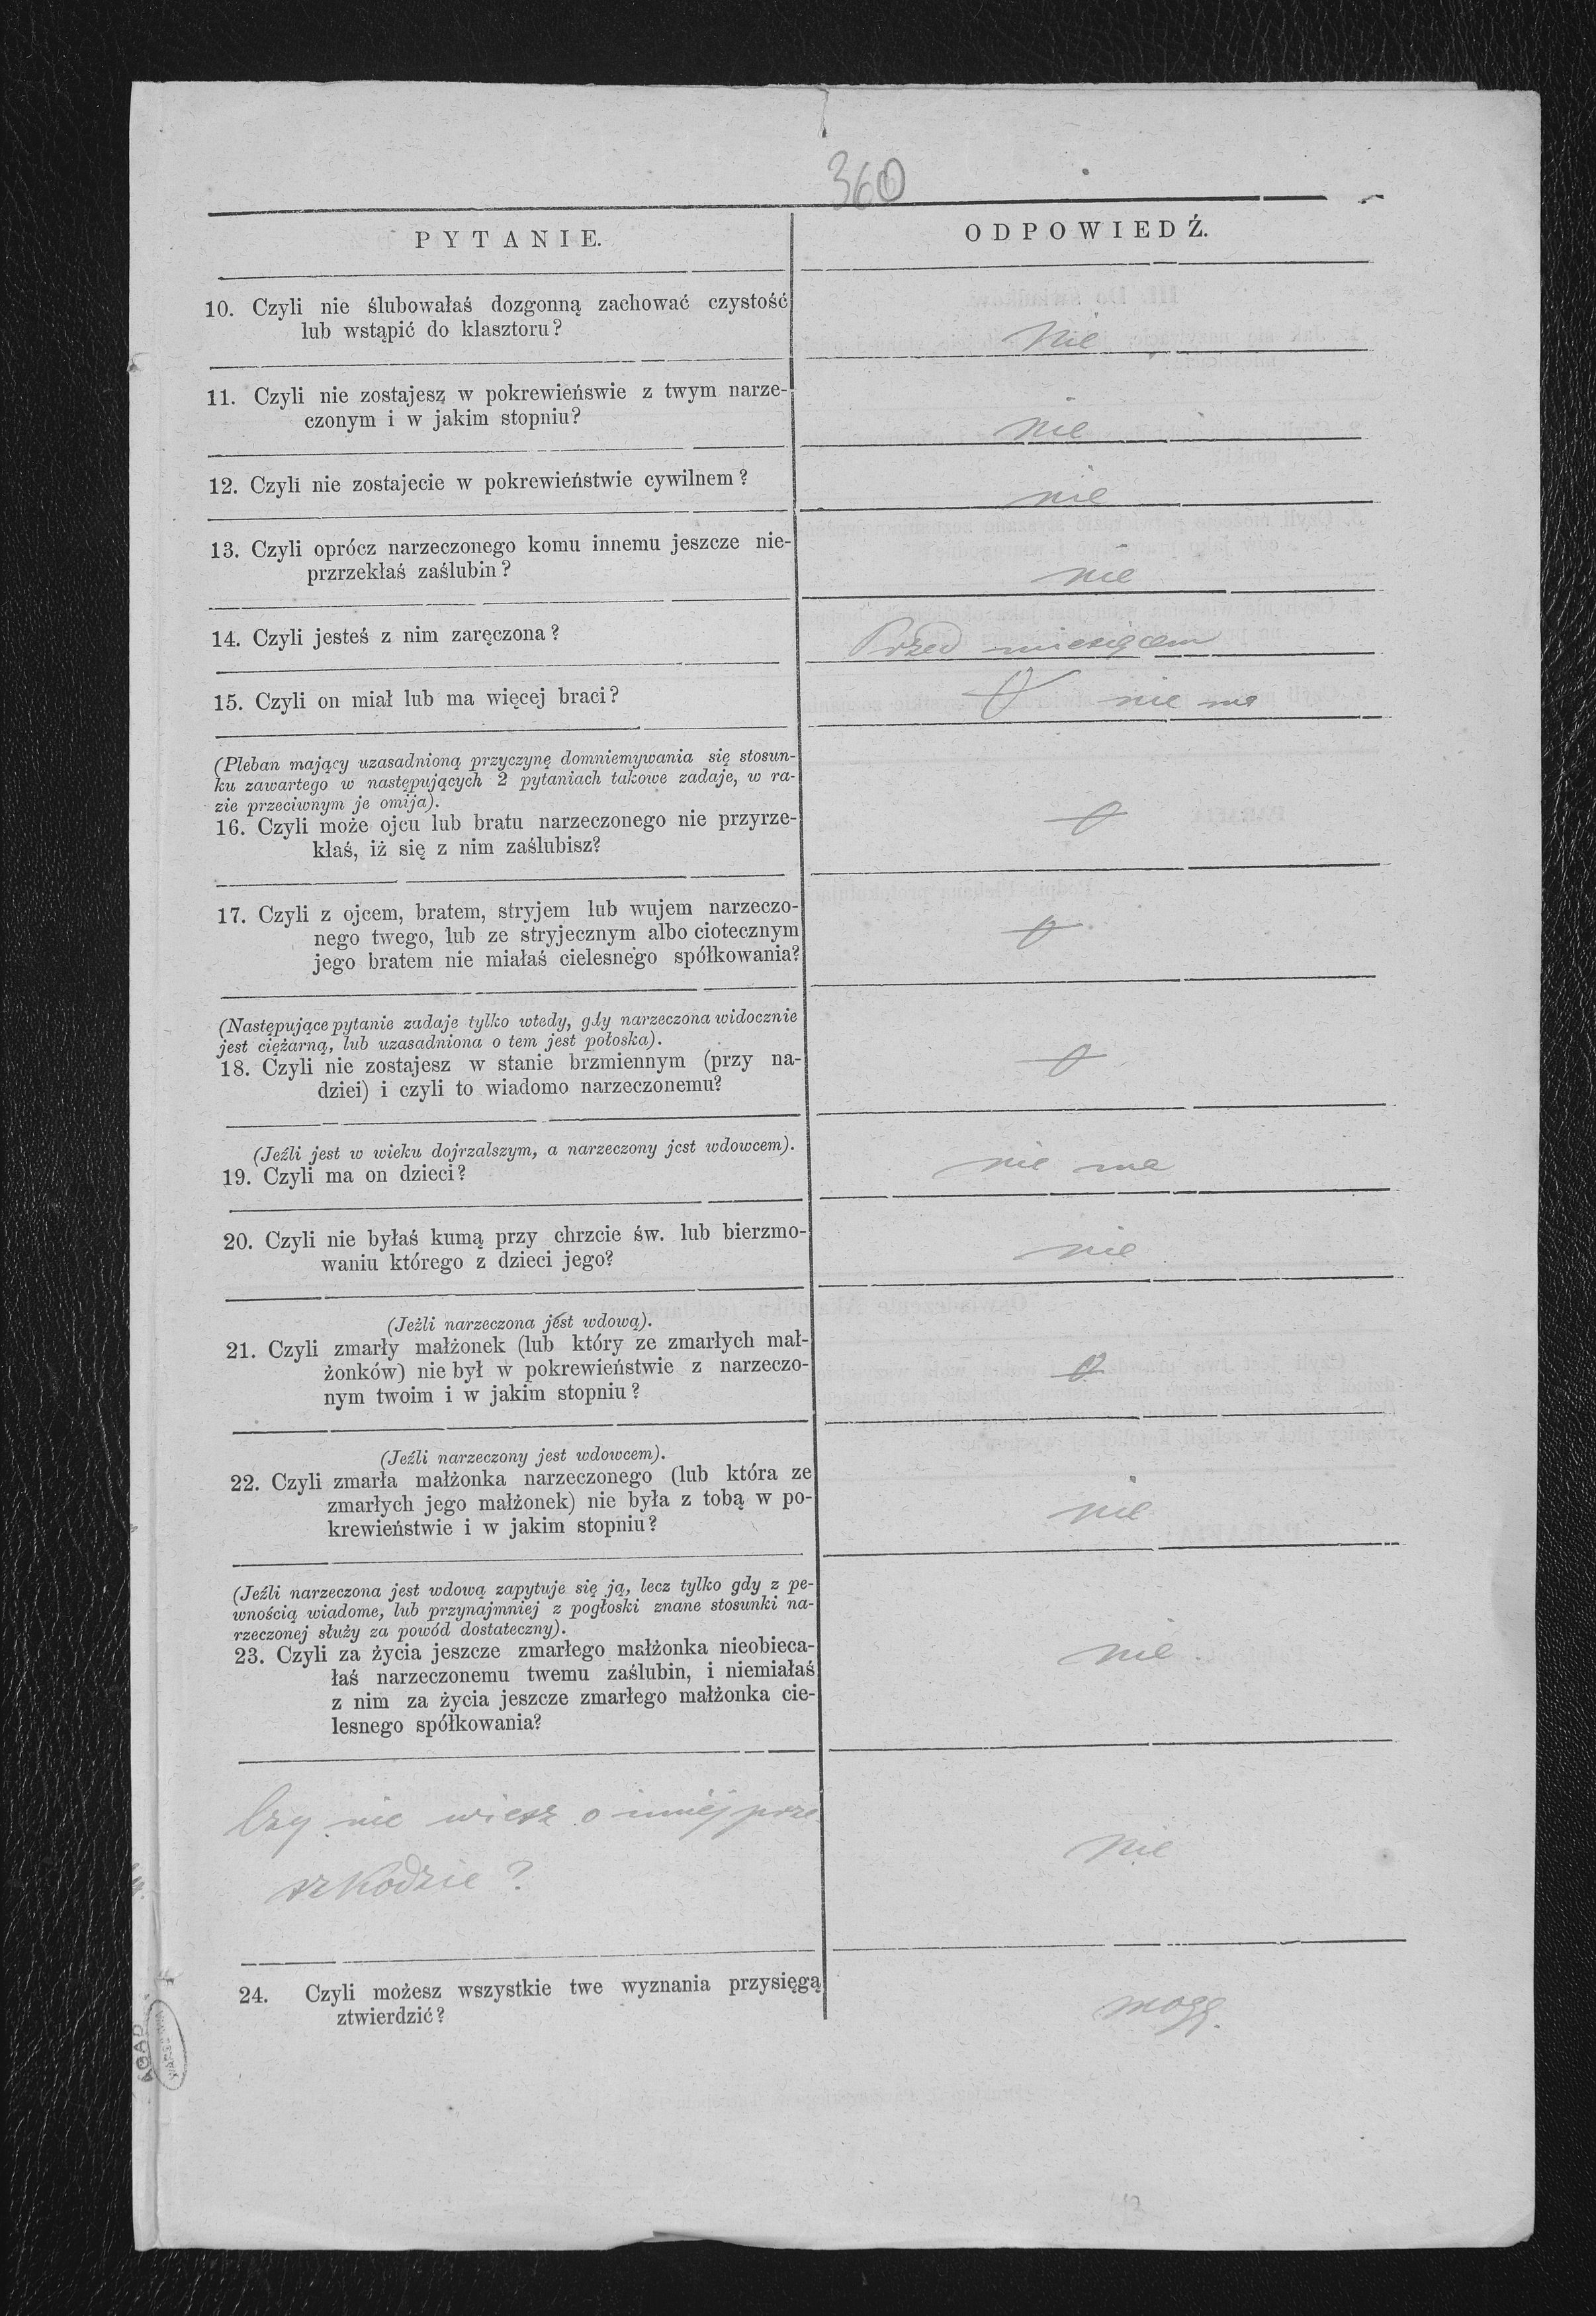 360
PYTANIE.
ODPOWIEDŹ.
10. Czyli nie ślubowałaś dozgonną zachować czystość
lub wstąpić do klasztoru?
Nie
11. Czyli nie zostajesz w pokrewieńswie z twym narze-
czonym i w jakim stopniu?
nie
12. Czyli nie zostajecie w pokrewieństwie cywilnem?
nie
13. Czyli oprócz narzeczonego komu innemu jeszcze nie-
przrzekłaś zaślubin?
nie
14. Czyli jesteś z nim zaręczona?
Przed miesiącem
15. Czyli on miał lub ma więcej braci?
nie ma
(Pleban mający uzasadnioną przyczynę domniemywania się stosun-
ku zawartego w następujących 2 pytaniach takowe zadaje, w ra-
zie przeciwnym je omija).
16. Czyli może ojcu lub bratu narzeczonego nie przyrze-
kłaś, iż się z nim zaślubisz?
17. Czyli z ojcem, bratem, stryjem lub wujem narzeczo-
nego twego, lub ze stryjecznym albo ciotecznym
jego bratem nie miałaś cielesnego spółkowania?
(Następujące pytanie zadaje tylko wtedy, gdy narzeczona widocznie
jest ciężarną, lub uzasadniona o tem jest połoska).
18. Czyli nie zostajesz w stanie brzmiennym (przy na-
dziei) i czyli to wiadomo narzeczonemu?
(Jeźli jest w wieku dojrzalszym, a narzeczony jest wdowcem).
19. Czyli ma on dzieci?
nie ma
20. Czyli nie byłaś kumą przy chrzcie św. lub bierzmo-
waniu którego z dzieci jego?
nie
(Jeżli narzeczona jest wdową).
21. Czyli zmarły małżonek (lub który ze zmarłych mał-
żonków) nie był w pokrewieństwie z narzeczo-
nym twoim i w jakim stopniu?
(Jeźli narzeczony jest wdowcem).
22. Czyli zmarła małżonka narzeczonego (lub która ze
zmarłych jego małżonek) nie była z tobą w po-
krewieństwie i w jakim stopniu?
nie
(Jeźli narzeczona jest wdową zapytuje się ją, lecz tylko gdy z pe-
wnością wiadome, lub przynajmniej z pogłoski znane stosunki na-
rzeczonej służy za powód dostateczny).
23. Czyli za życia jeszcze zmarłego małżonka nieobieca-
łaś narzeczonemu twemu zaślubin, i niemiałaś
z nim za życia jeszcze zmarłego małżonka cie-
lesnego spółkowania?
nie
Czy nie wiesz o innej prze
szkodzie?
nie
24. Czyli możesz wszystkie twe wyznania przysięgą
ztwierdzić?
mogę.
AGAD